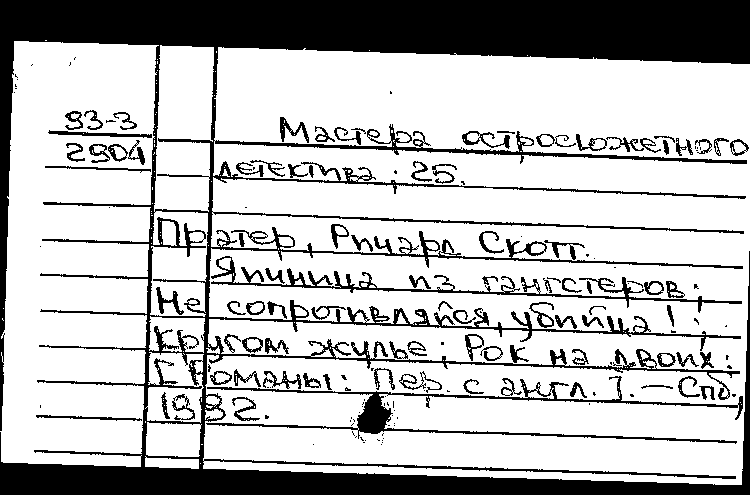 93-3
2904
Мастера остросюжетного
детектива; 25.
Пратер, Ричард Скотт.
Яичница из гангстеров;
Не сопротивляйся, убийца!;
Кругом жулье; Рок на двоих:
[Романы: Пер. с англ.]. — Спб.,
1992.